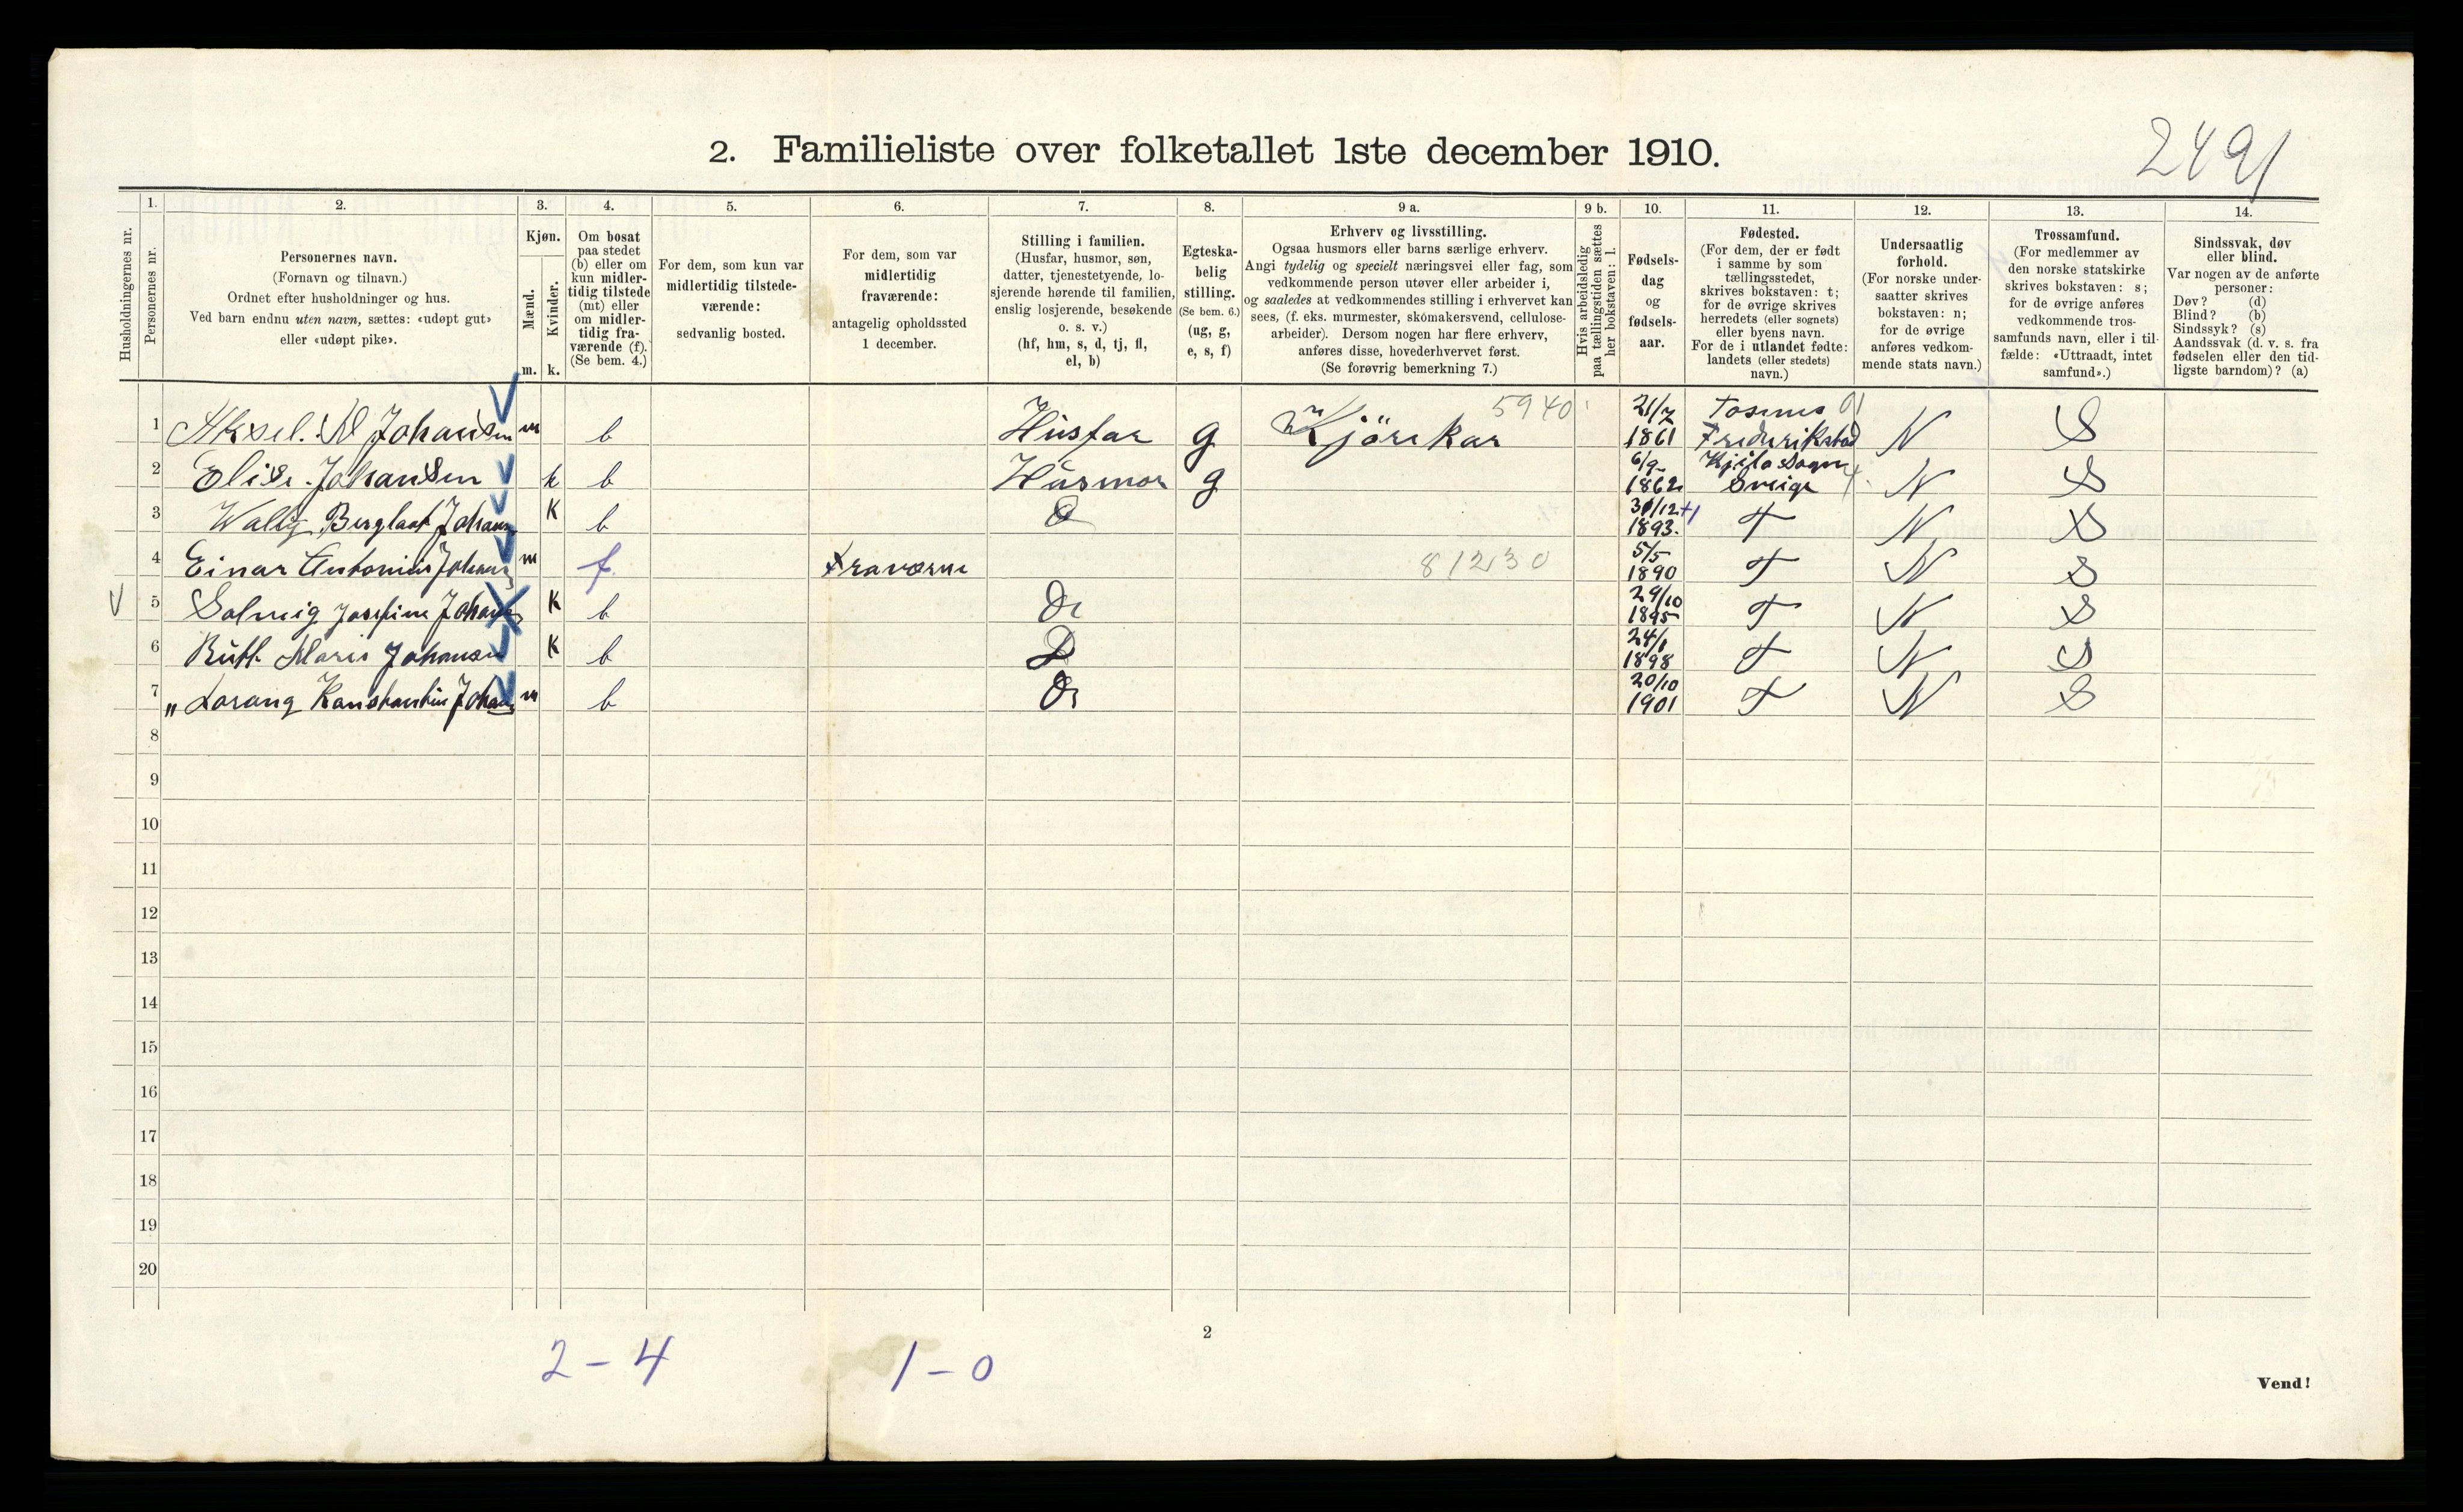 2. Familieliste over folketallet 1ste december 1910.
2491
Husholdningernes nr.
1. Personernes nr.
2. Personernes navn. (Fornavn og tilnavn.) Ordnet efter husholdninger og hus. Ved barn endnu uten navn, sættes: «udøpt gut» eller «udøpt pike».
3. Kjøn. Mænd. m. Kvinder. k.
4. Om bosat paa stedet (b) eller om kun midlertidig tilstede (mt) eller om midlertidig fraværende (f). (Se bem. 4.)
5. For dem, som kun var midlertidig tilstedeværende: sedvanlig bosted.
6. For dem, som var midlertidig fraværende: antagelig opholdssted 1 december.
7. Stilling i familien. (Husfar, husmor, søn, datter, tjenestetyende, losjerende hørende til familien, enslig losjerende, besøkende o. s. v.) (hf, hm, s, d, tj, fl, el, b)
8. Egteskabelig stilling. (Se bem. 6.) (ug, g, e, s, f)
9 a. Erhverv og livsstilling. Ogsaa husmors eller barns særlige erhverv. Angi tydelig og specielt næringsvei eller fag, som vedkommende person utøver eller arbeider i, og saaledes at vedkommendes stilling i erhvervet kan sees, (f. eks. murmester, skomakersvend, cellulosearbeider). Dersom nogen har flere erhverv, anføres disse, hovederhvervet først. (Se forøvrig bemerkning 7.)
9 b. Hvis arbeidsledig paa tællingstiden sættes her bokstaven: l.
10. Fødselsdag og fødselsaar.
11. Fødested. (For dem, der er født i samme by som tællingsstedet, skrives bokstaven: t; for de øvrige skrives herredets (eller sognets) eller byens navn. For de i utlandet fødte: landets (eller stedets) navn.)
12. Undersaatlig forhold. (For norske undersaatter skrives bokstaven: n; for de øvrige anføres vedkommende stats navn.)
13. Trossamfund. (For medlemmer av den norske statskirke skrives bokstaven: s; for de øvrige anføres vedkommende trossamfunds navn, eller i tilfælde: «Uttraadt, intet samfund».)
14. Sindssvak, døv eller blind. Var nogen av de anførte personer: Døv? (d) Blind? (b) Sindssyk? (s) Aandssvak (d. v. s. fra fødselen eller den tidligste barndom)? (a)
1 Aksel. M Johansen m b Husfar g Kjörekar 5940 21/7 1861 Tosenes Frederikstad N S
2 Elise. Johansen k b Husmor g 6/9 1862 Sverige N S
3 Wally Berglaot Johans K b D 30/12 +1 1893. T N S
4 Einar Antonius Johans m f. Fraværne 81230 5/5 1890 T N S
5 Solveig Josefine Johans K b D 29/10 1895 T N S
6 Ruth Marie Johansen K b D 24/1 1898 T N S
7 „ Lorang Konstantin Johans m b 20/10 1901 T N S
8
9
10
11
12
13
14
15
16
17
18
19
20
2
2 - 4 1 - 0
Vend!